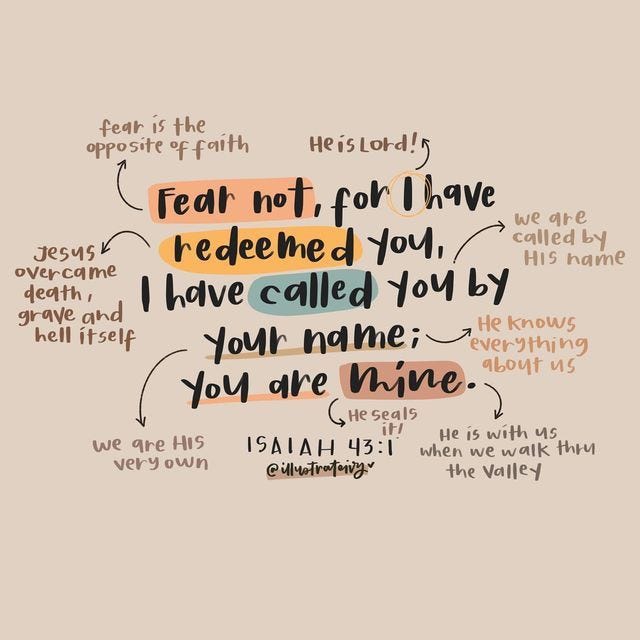 fear is the
opposite of faith
He is Lord!
Fear not, for I have
redeemed you,
I have called you by
your name;
you are mine.
Jesus
overcame
death,
grave and
hell itself
we are
called by
His name
He knows
everything
about us
we are His
very own
He seals
it!
He is with us
when we walk thru
the valley
ISAIAH 43:1
@illustrateivy